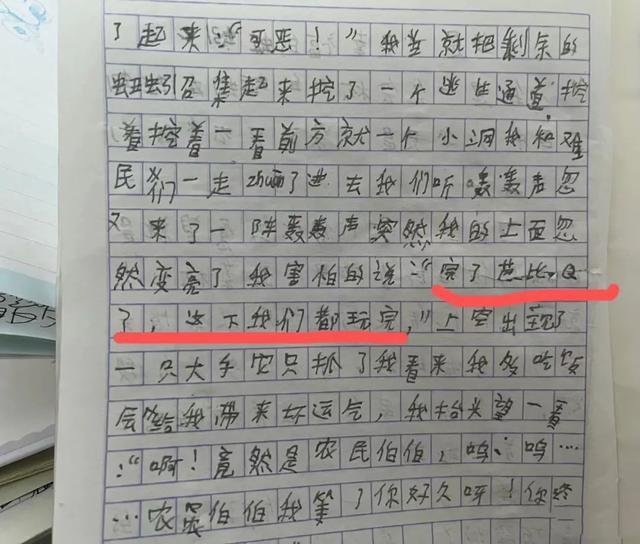 了起来:“可恶！”我当就把剩余的
蚯蚓召集起来挖了一个逃生通道,挖
着挖着一看前方就一个小洞我和难
民们一走zhuan了进去我们听轰轰声忽
又来了一阵轰轰声突然我的上面忽
然变亮了我害怕的说:“完了芭比Q
了，这下我们都玩完,”上空出现了
一只大手农只抓了我看来我多吃饭
会给我带来坏运气，我抬头望一看
:“啊！竟然是农民伯伯，呜:呜…
…农民伯伯我等了你好久呀！你终